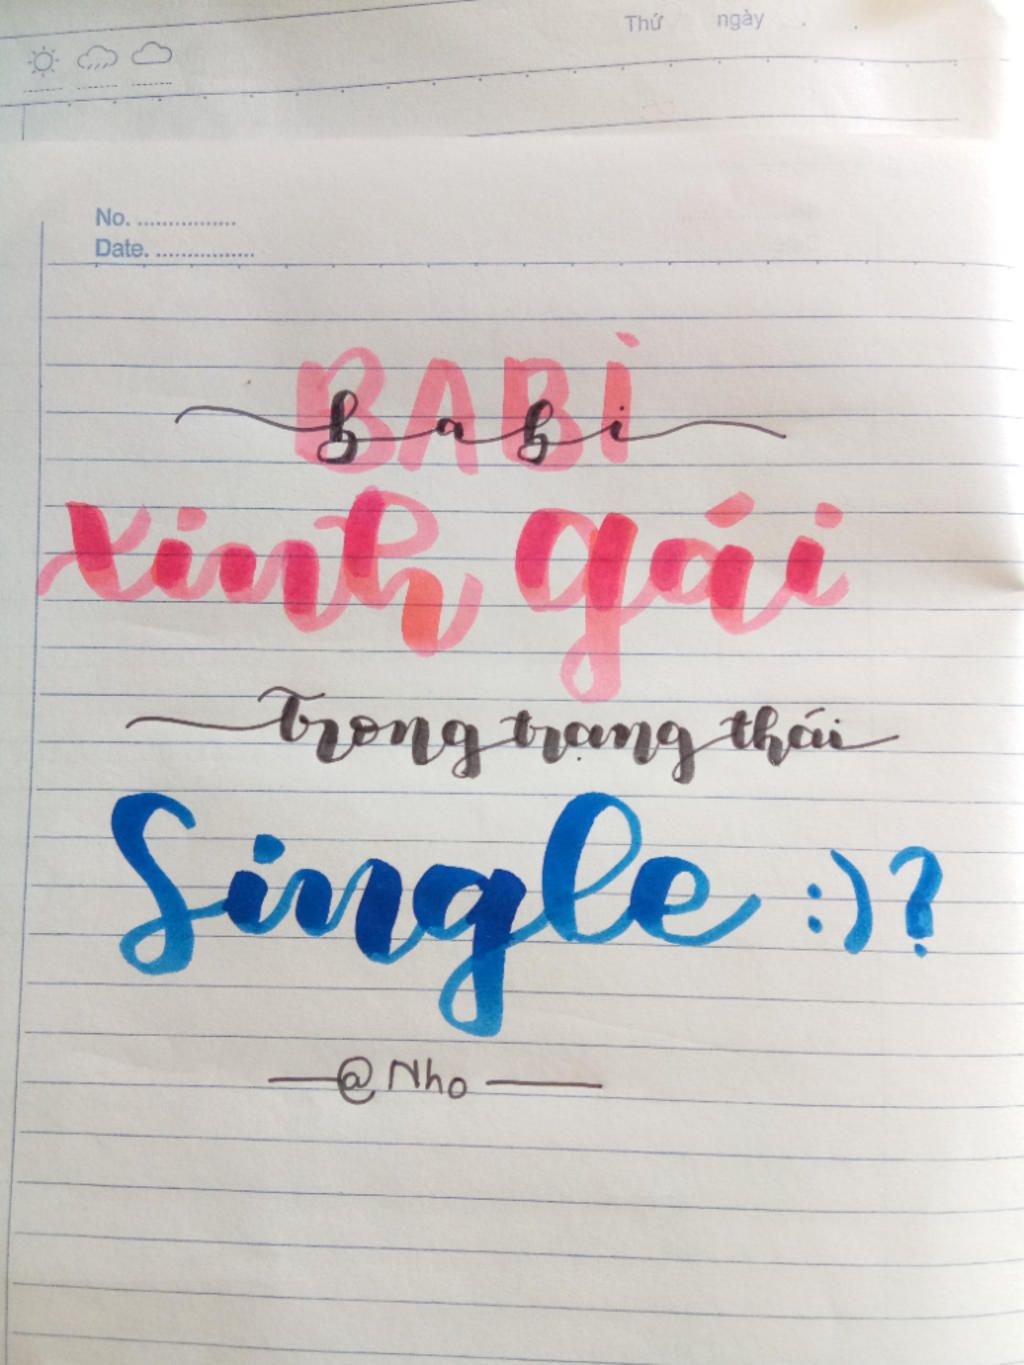 Thứ ngày . .
No. ................
Date. ................
BABI
babi
xinh gái
trong trạng thái
Single :) ?
@Nho